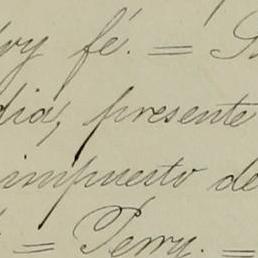 oy fé. =
dia, presente
impuesto de
= Perry. =